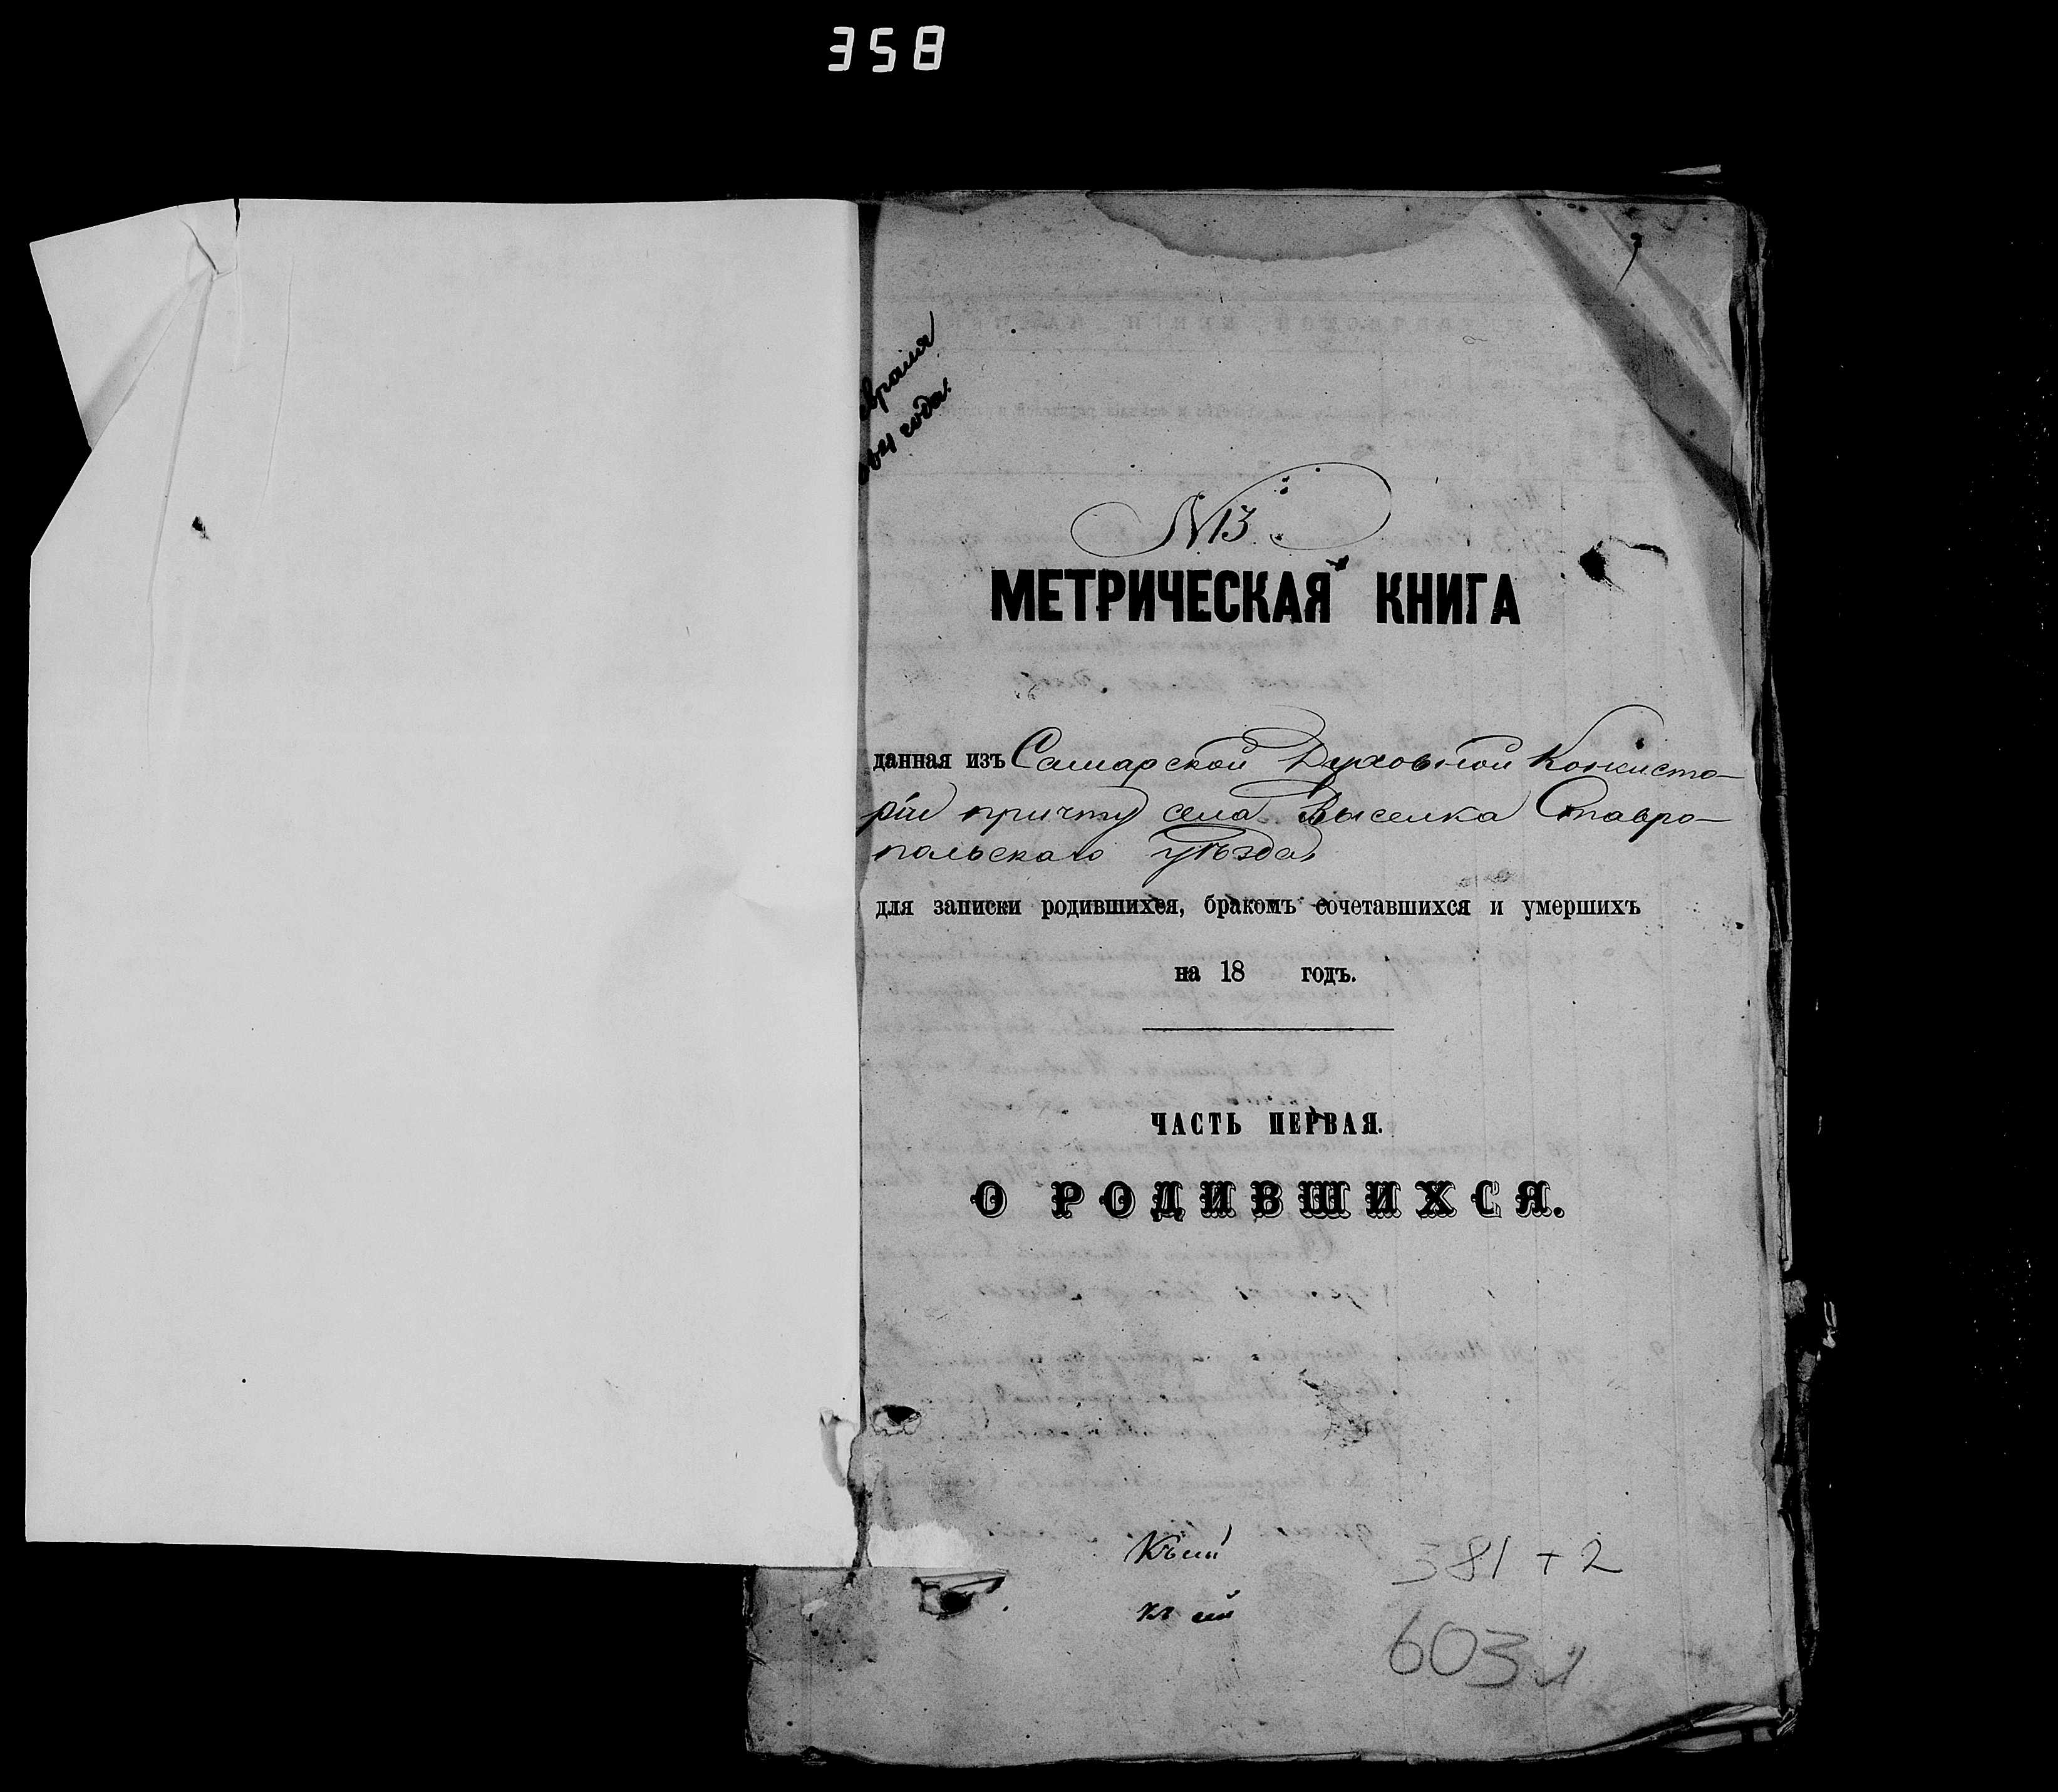 358
года.
N 13
МЕТРИЧЕСКАЯ КНИГА
данная изъ Самарской Духовной Консисто-
ріи причту села Выселка Ставро-
польскаго уѣзда
для записки родившихся, бракомъ сочетавшихся и умершихъ
на 18 годъ.
ЧАСТЬ ПЕРВАЯ.
О РОДИВШИХСЯ.
Къ сей
къ сей
381 + 2
603